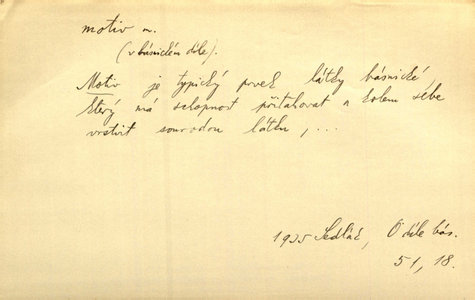 motiv m.
(v básnickém díle).
Motiv je typický prvek látky básnické,
který má schopnost přitahovat a kolem sebe
vrstvit sourodou látku, ...
1935 Sedlák, O díle bás.
51, 18.